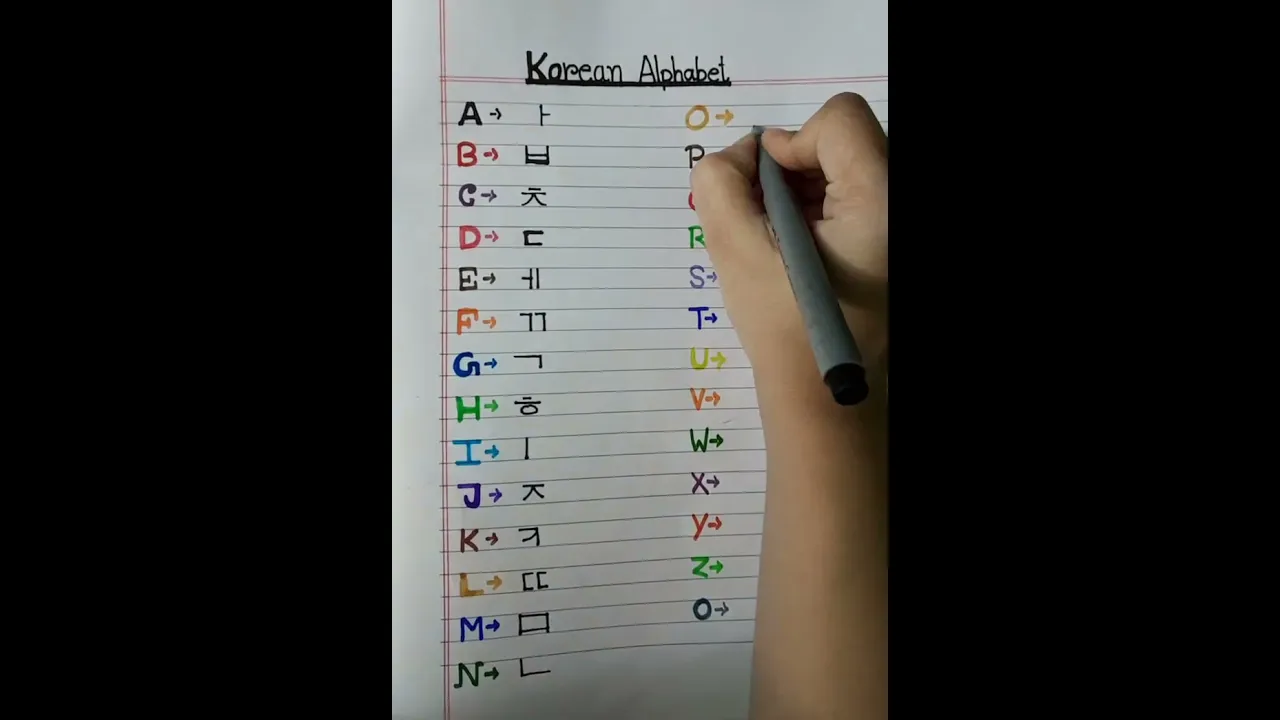 Korean Alphabet
A→ ㅏ
B→ ㅂ
C→ ㅊ
D→ ㄷ
E→ ㅔ
F→ ㄲ
G→ ㄱ
H→ ㅎ
I→ ㅣ
J→ ㅈ
K→ ㅋ
L→ ㄸ
M→ ㅁ
N→ ㄴ
O→
P
R
S→
T→
U→
V→
W→
X→
Y→
Z→
O→